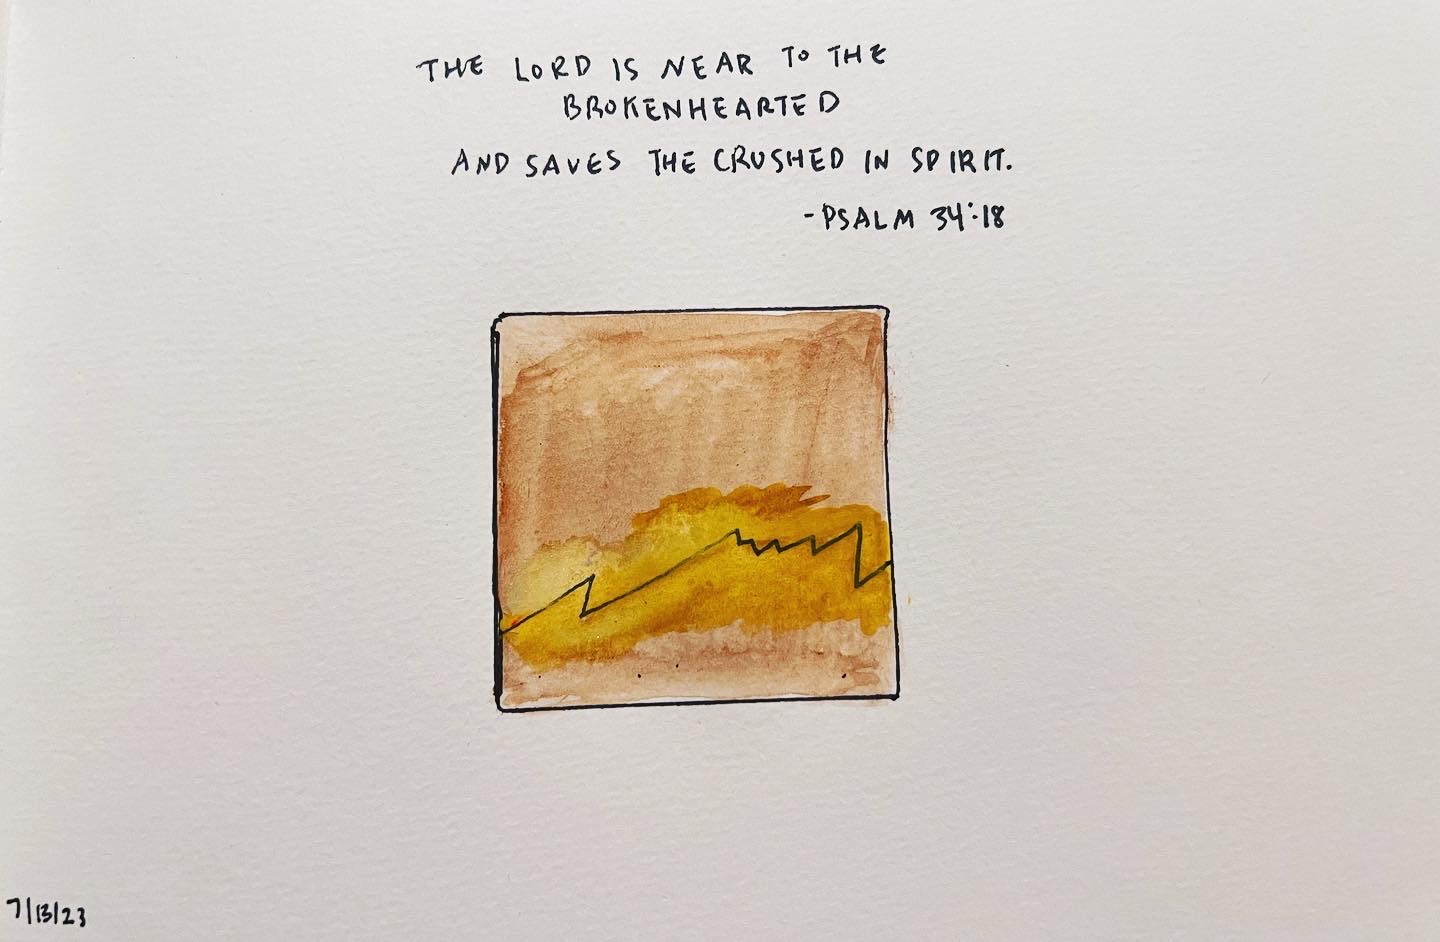 THE LORD IS NEAR TO THE
BROKENHEARTED
AND SAVES THE CRUSHED IN SPIRIT.
-PSALM 34:18
7/13/23